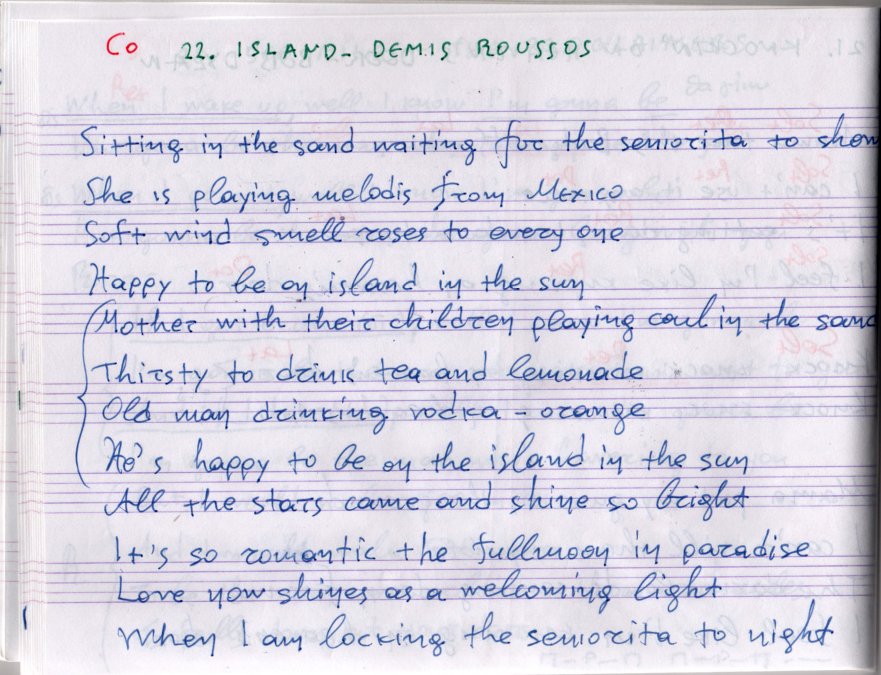 Co 22. ISLAND - DEMIS ROUSSOS
Sitting in the sand waiting for the seniorita to show
She is playing melodis from Mexico
Soft wind smell roses to every one
Happy to be on island in the sun
Mother with their children playing in the sand
Thirsty to drink tea and lemonade
Old man drinking vodka - orange
He's happy to be on the island in the sun
All the stars came and shine so bright
It's so romantic the fullmoon in paradise
Love now shines as a welcoming light
When I am locking the seniorita to night